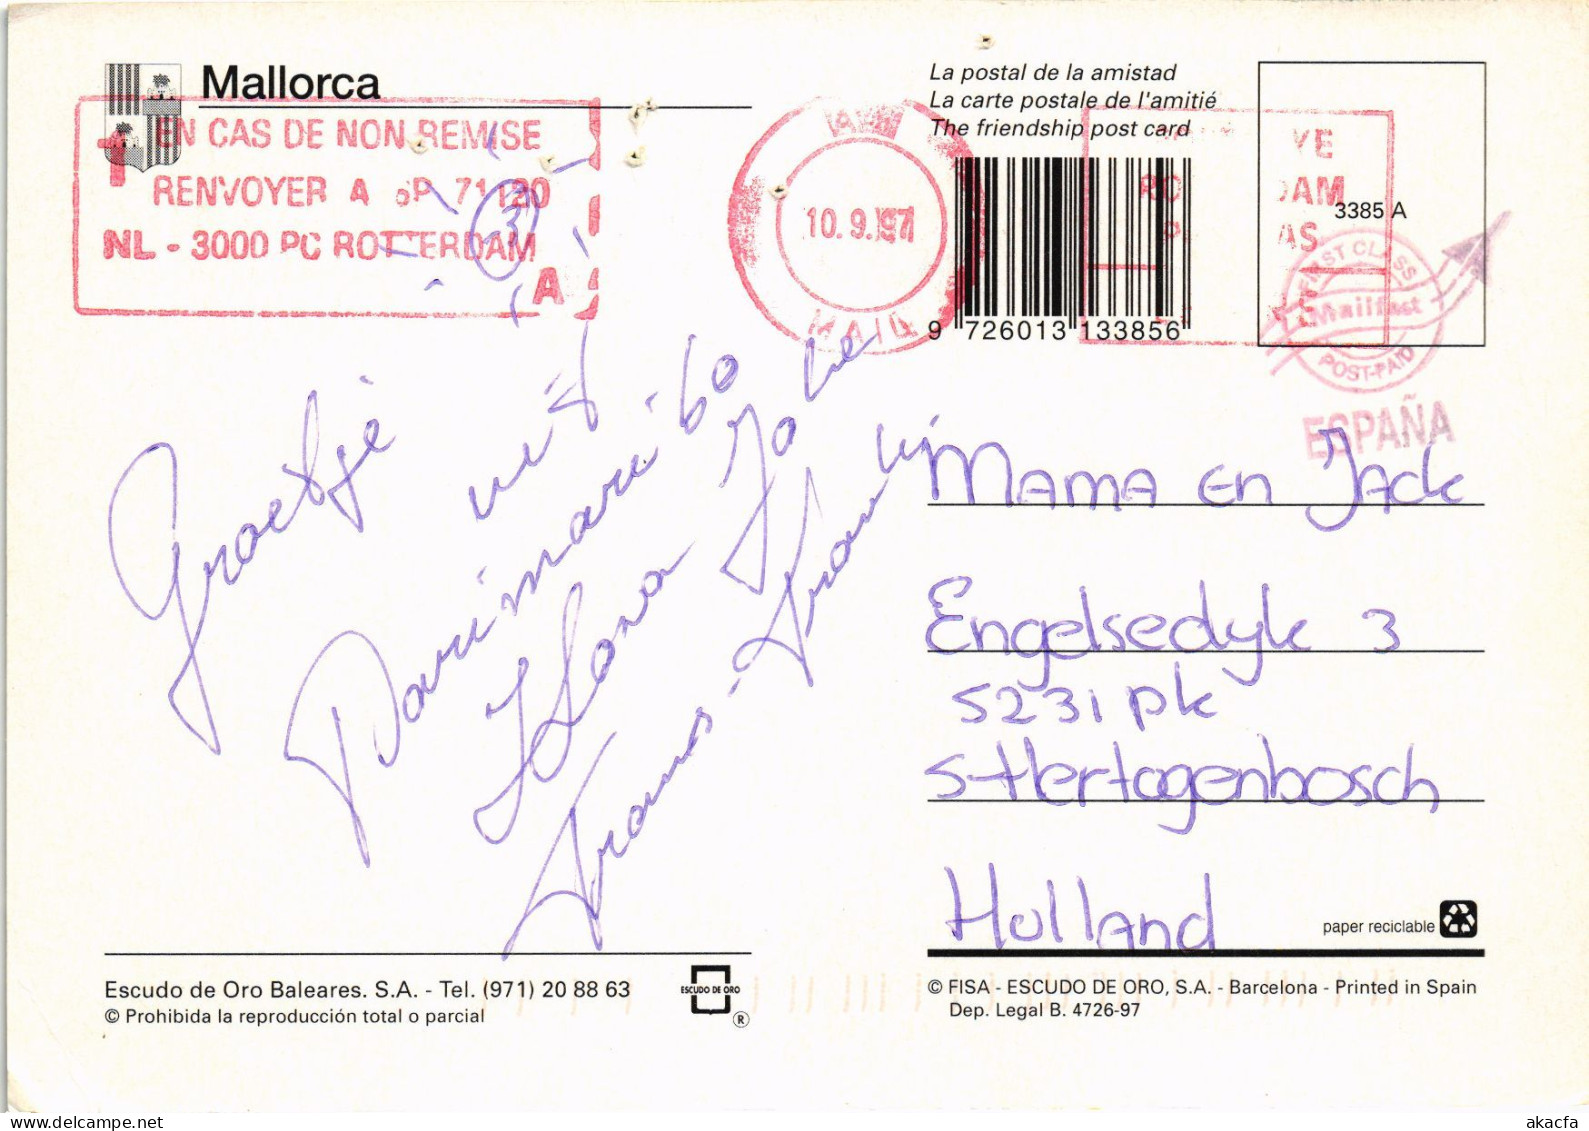 Mallorca
La postal de la amistad
La carte postale de l'amitié
The friendship post card
EN CAS DE NON REMISE
RENVOYER A 71120
NL - 3000 PC ROTTERDAM
A
3
10.9.97
MAIL
3385 A
9 726013 133856
FIRST CLASS
Mailfast
POST-PAID
ESPAÑA
Groetje
uit
Ilona
Frans - Franklij
Mama en Jack
Engelsedyk 3
5231 pk
s-Hertogenbosch
Holland
paper reciclable
Escudo de Oro Baleares. S.A. - Tel. (971) 20 88 63
© Prohibida la reproducción total o parcial
ESCUDO DE ORO
®
© FISA - ESCUDO DE ORO, S.A. - Barcelona - Printed in Spain
Dep. Legal B. 4726-97
www.delcampe.net
akacfa